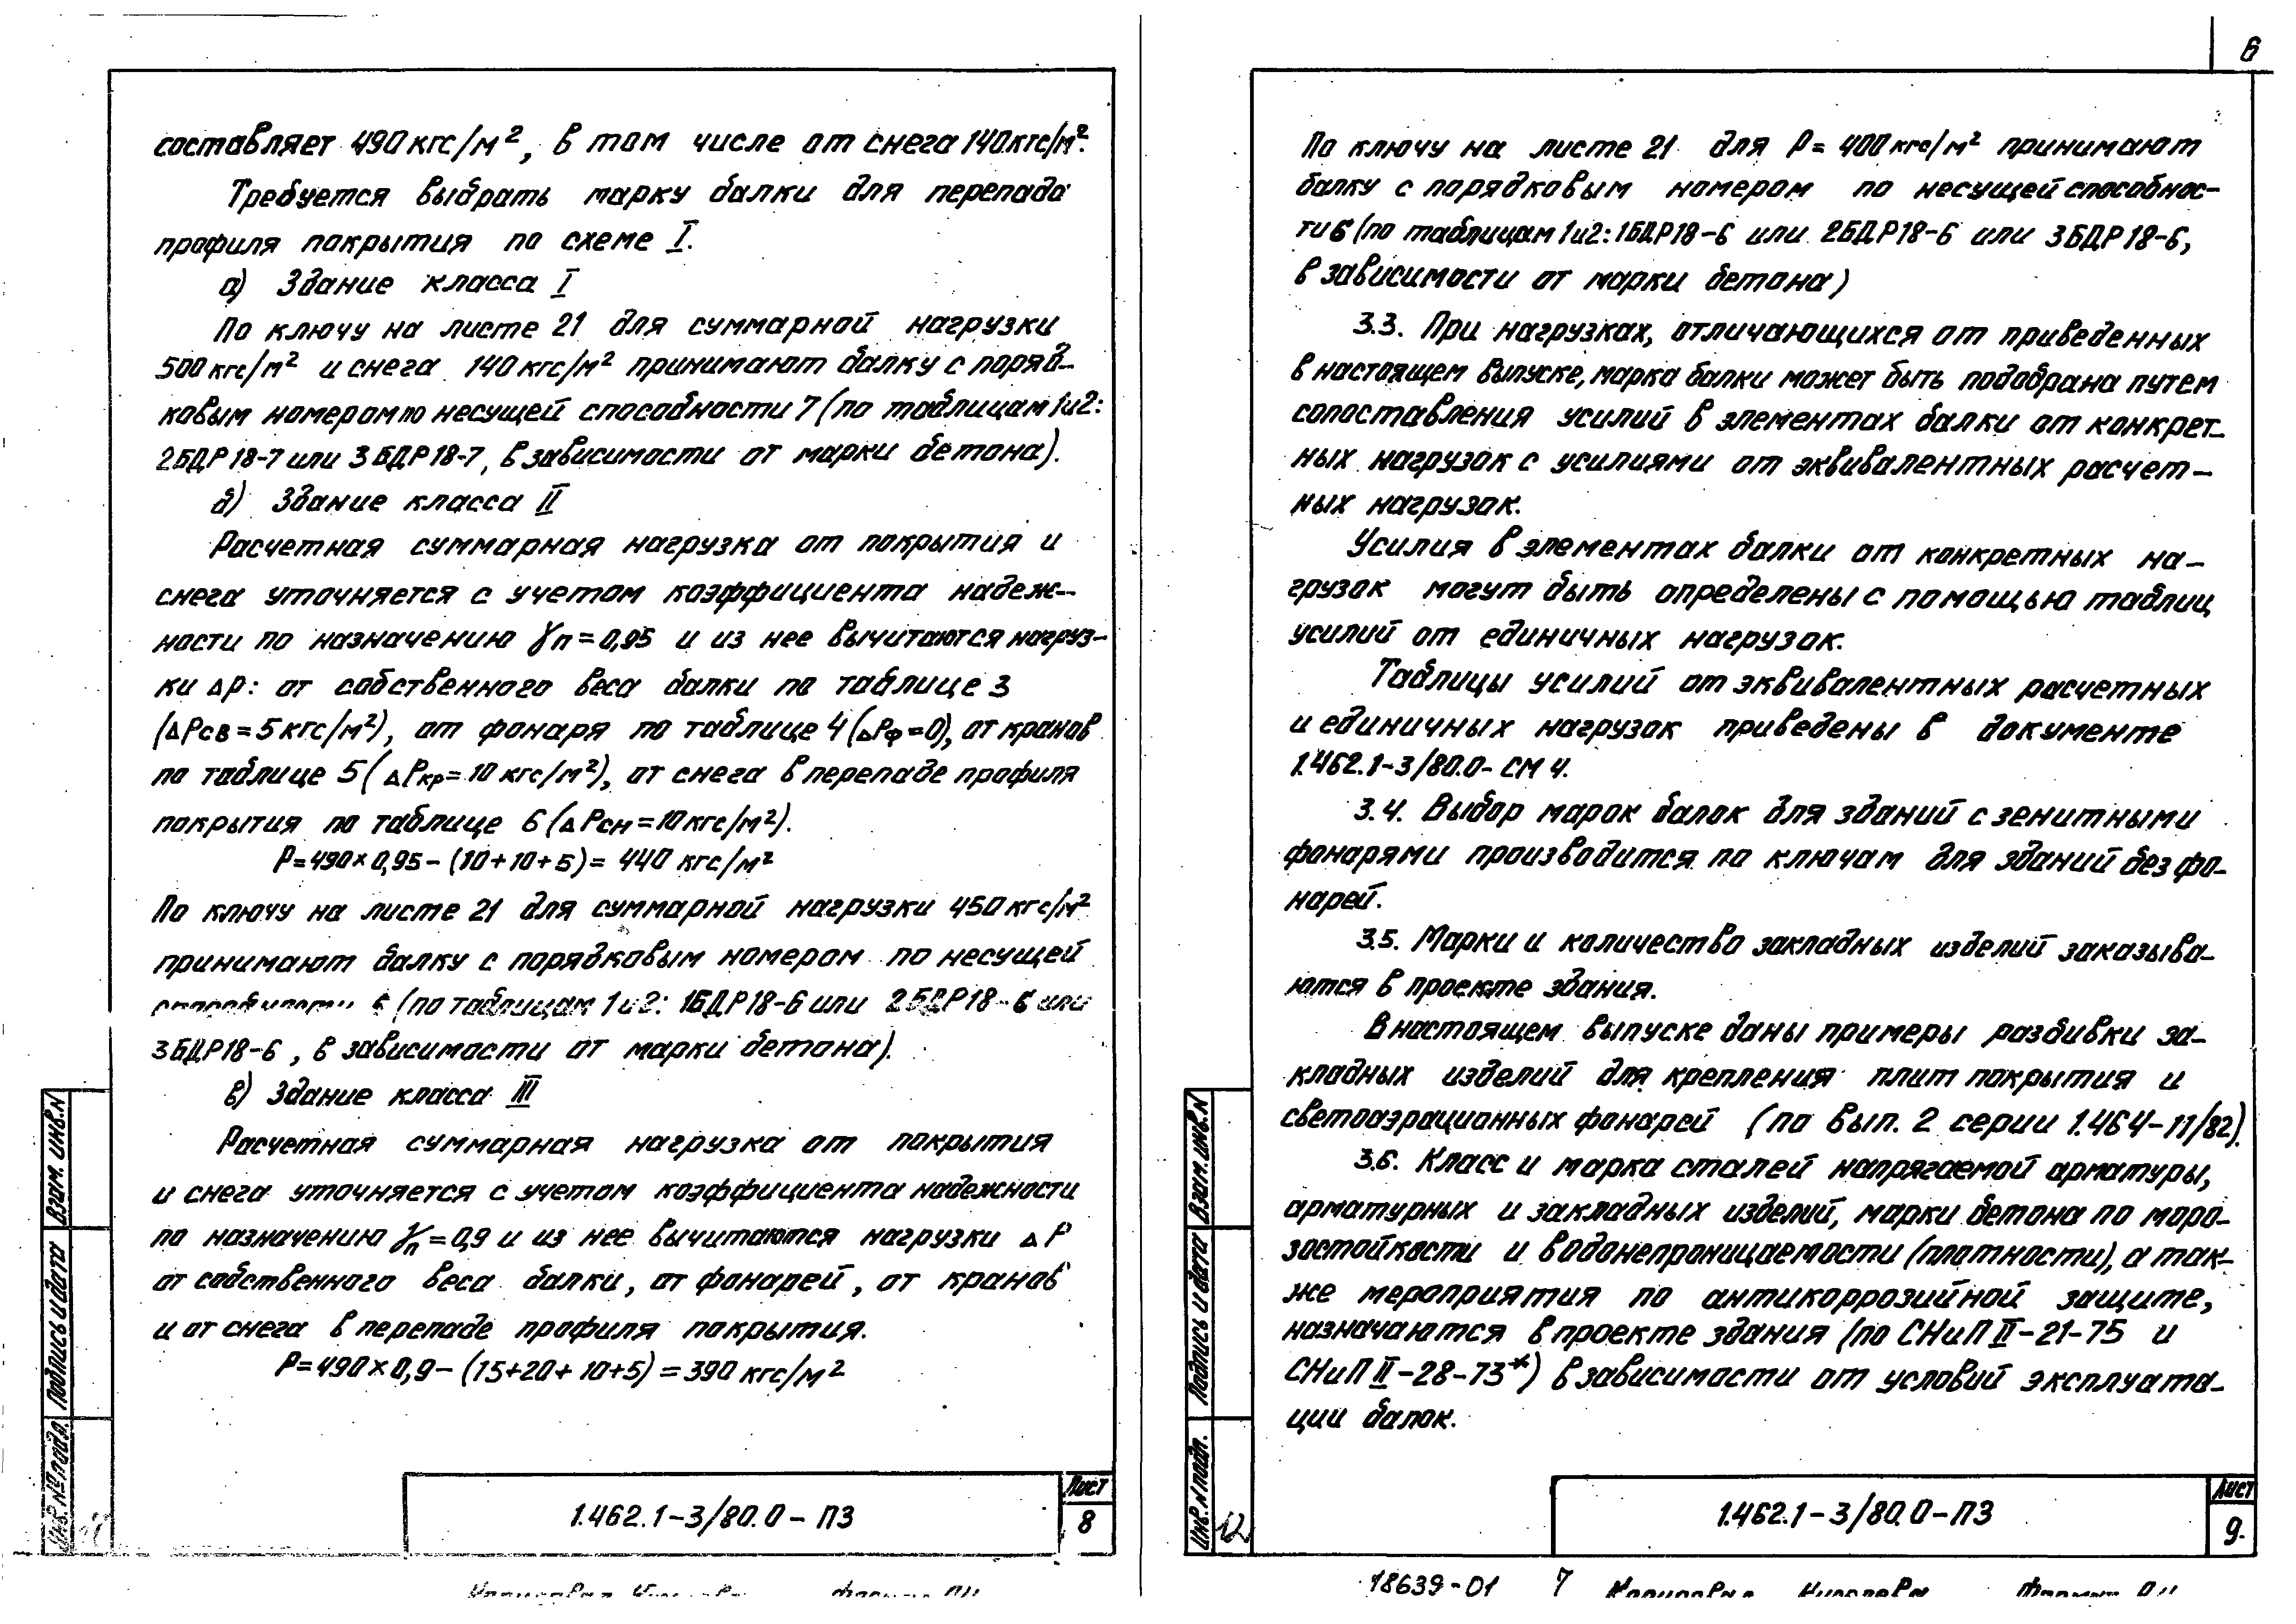 составляет 490 кгс/м², в том числе от снега 140 кгс/м².
Требуется выбрать марку балки для перепада
профиля покрытия по схеме I.
а) Здание класса I
По ключу на листе 21 для суммарной нагрузки
500 кгс/м² и снега 140 кгс/м² принимают балку с поряд-
ковым номером по несущей способности 7 (по таблицам 1 и 2:
2БДР18-7 или 3БДР18-7, в зависимости от марки бетона).
б) Здание класса II
Расчетная суммарная нагрузка от покрытия и
снега уточняется с учетом коэффициента надеж-
ности по назначению γп = 0,95 и из нее вычитаются нагруз-
ки ΔР: от собственного веса балки по таблице 3
(ΔРсв = 5 кгс/м²), от фонаря по таблице 4 (ΔРф = 0), от кранов
по таблице 5 (ΔРкр = 10 кгс/м²), от снега в перепаде профиля
покрытия по таблице 6 (ΔРсн = 10 кгс/м²).
Р = 490 × 0,95 – (10 + 10 + 5) = 440 кгс/м²
По ключу на листе 21 для суммарной нагрузки 450 кгс/м²
принимают балку с порядковым номером по несущей
способности 6 (по таблицам 1 и 2: 1БДР18-6 или 2БДР18-6 или
3БДР18-6, в зависимости от марки бетона).
в) Здание класса III
Расчетная суммарная нагрузка от покрытия
и снега уточняется с учетом коэффициента надежности
по назначению γп = 0,9 и из нее вычитаются нагрузки ΔР
от собственного веса балки, от фонарей, от кранов
и от снега в перепаде профиля покрытия.
Р = 490 × 0,9 – (15 + 20 + 10 + 5) = 390 кгс/м²
Взам. инв. N
Подпись и дата
Инв. № подл.
1.462.1-3/80.0-ПЗ
Лист
8
6
По ключу на листе 21 для Р = 400 кгс/м² принимают
балку с порядковым номером по несущей способнос-
ти 6 (по таблицам 1 и 2: 1БДР18-6 или 2БДР18-6 или 3БДР18-6,
в зависимости от марки бетона)
3.3. При нагрузках, отличающихся от приведенных
в настоящем выпуске, марка балки может быть подобрана путем
сопоставления усилий в элементах балки от конкрет-
ных нагрузок с усилиями от эквивалентных расчет-
ных нагрузок.
Усилия в элементах балки от конкретных на-
грузок могут быть определены с помощью таблиц
усилий от единичных нагрузок.
Таблицы усилий от эквивалентных расчетных
и единичных нагрузок приведены в документе
1.462.1-3/80.0-СМ4.
3.4. Выбор марок балок для зданий с зенитными
фонарями производится по ключам для зданий без фо-
нарей.
3.5. Марки и количество закладных изделий заказыва-
ются в проекте здания.
В настоящем выпуске даны примеры разбивки за-
кладных изделий для крепления плит покрытия и
светоаэрационных фонарей (по вып. 2 серии 1.464-11/82).
3.6. Класс и марка сталей напрягаемой арматуры,
арматурных и закладных изделий, марки бетона по моро-
зостойкости и водонепроницаемости (плотности), а так-
же мероприятия по антикоррозийной защите,
назначаются в проекте здания (по СНиП II-21-75 и
СНиП II-28-73*) в зависимости от условий эксплуата-
ции балок.
Взам. инв. N
Подпись и дата
Инв. N подл.
12
1.462.1-3/80.0-ПЗ
Лист
9.
18639-01 7